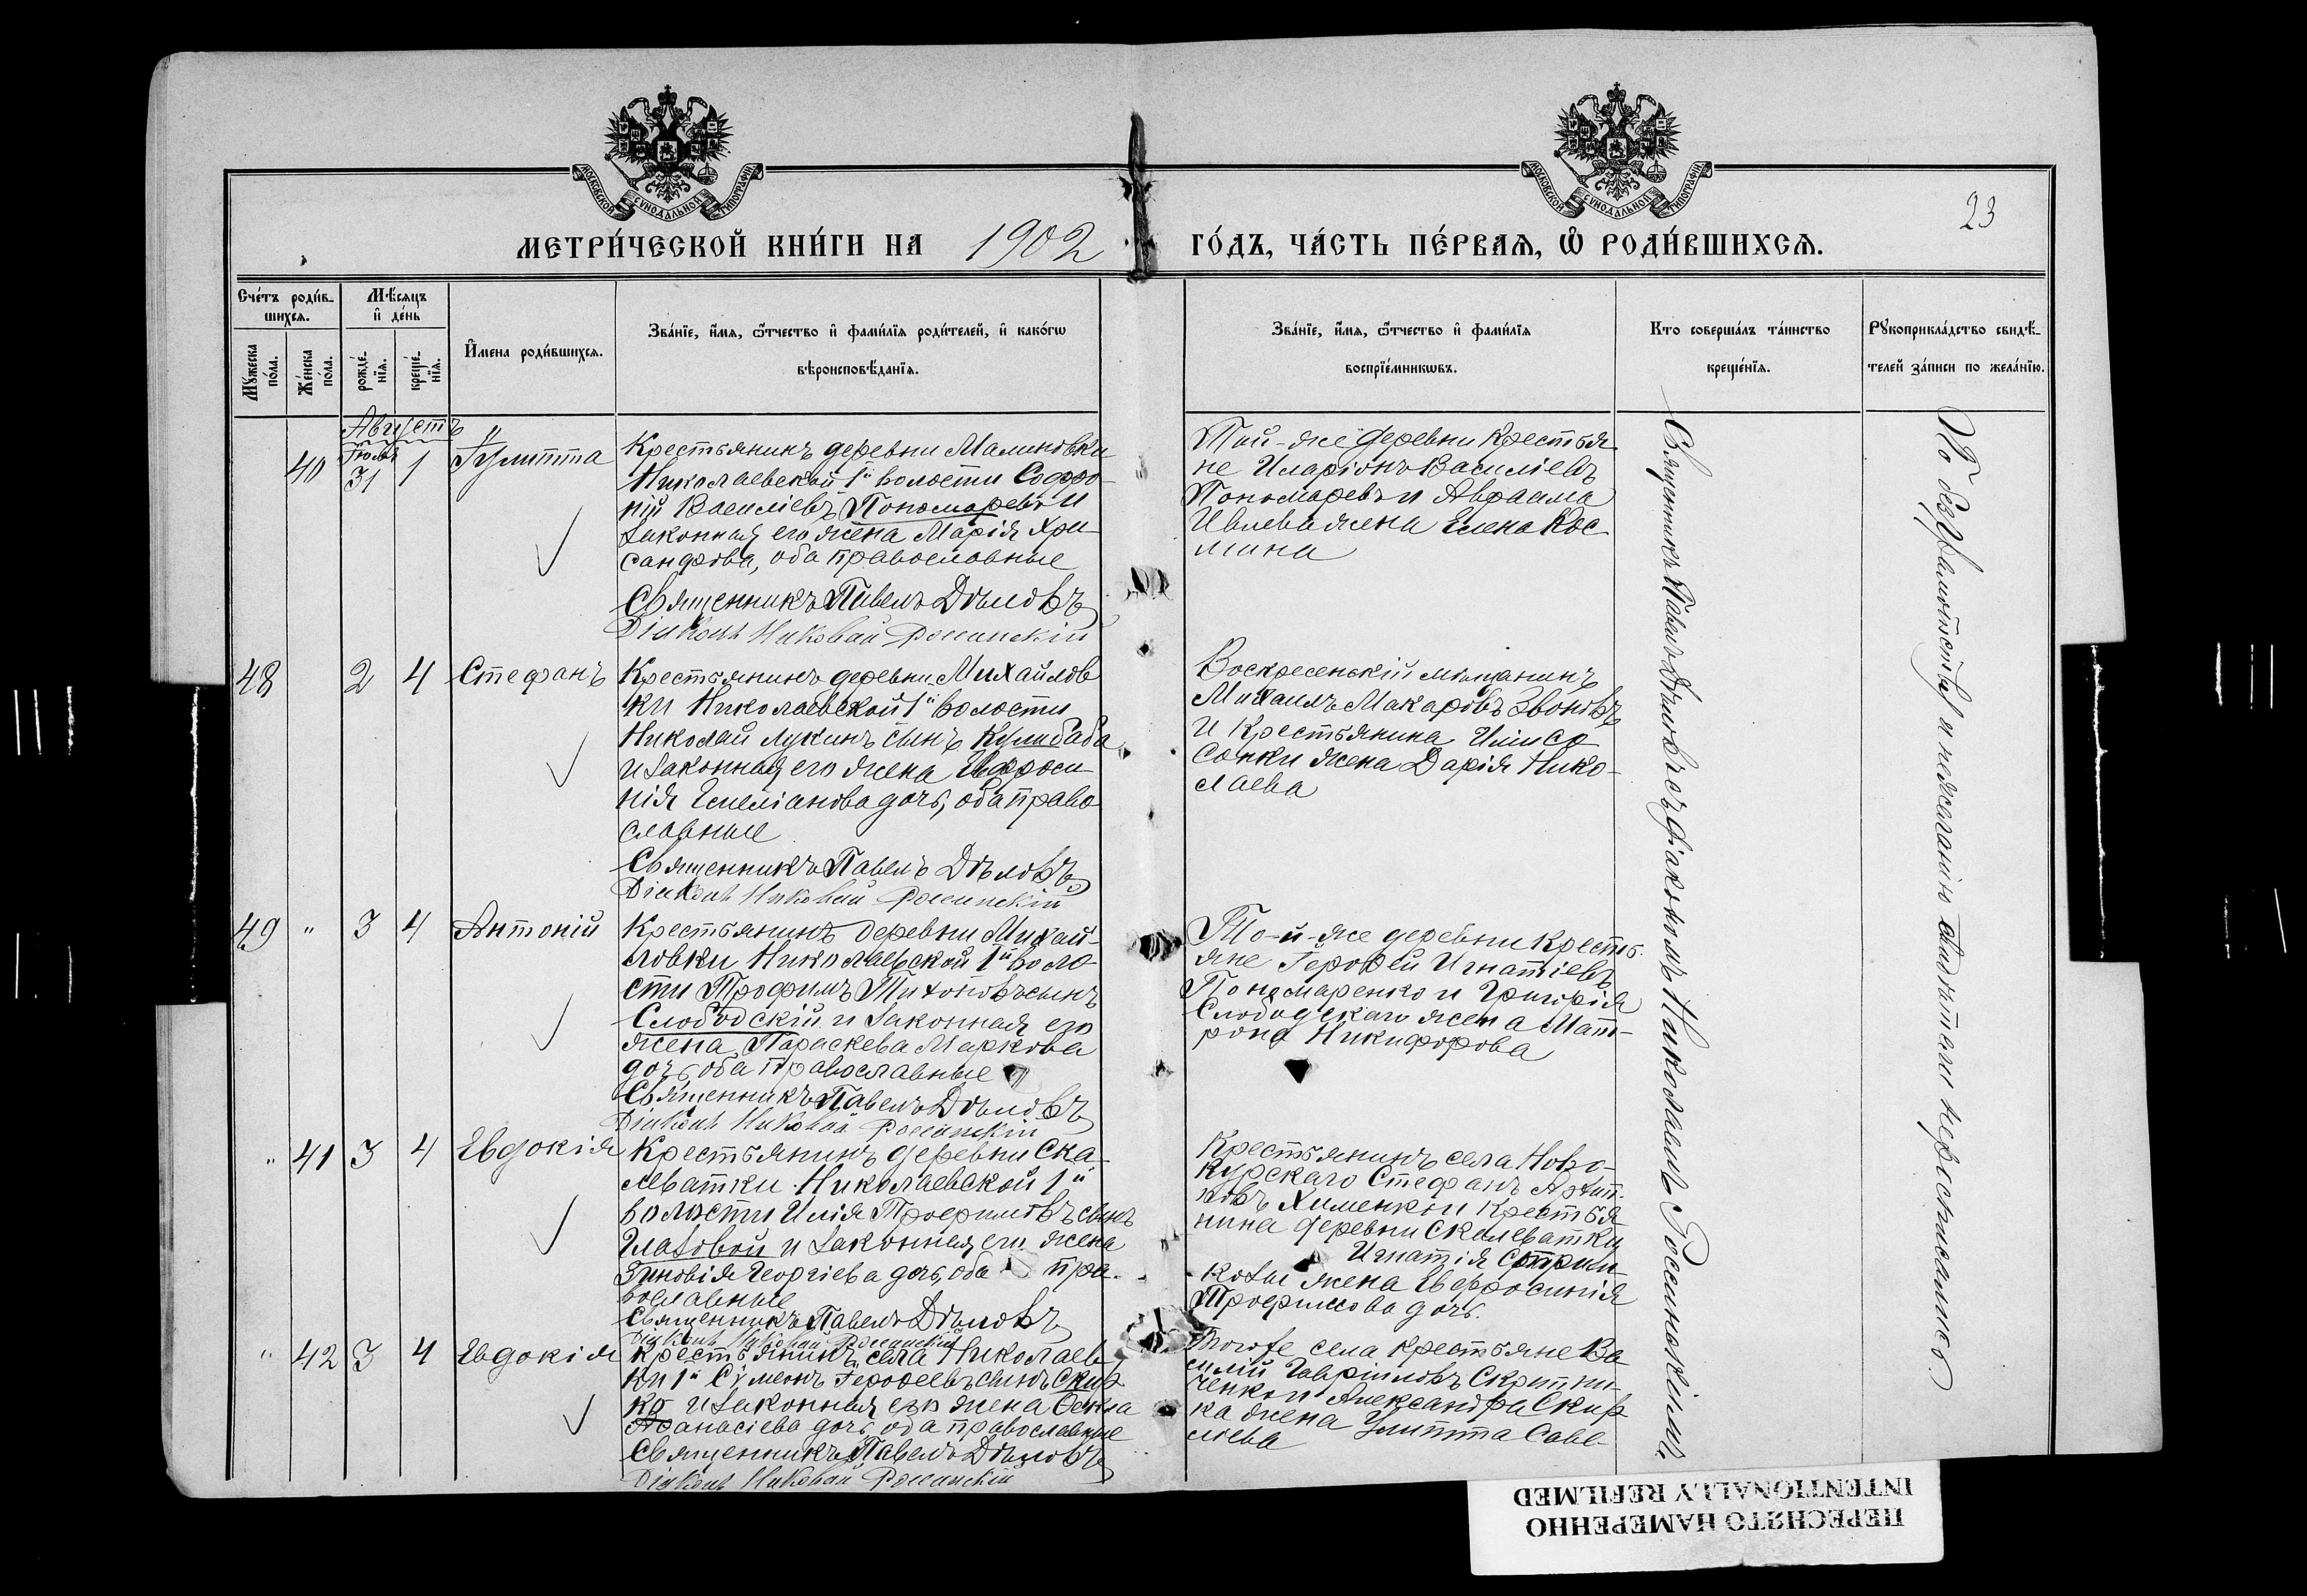 МОСКОВСКОЙ СѴНОДАЛЬНОЙ ТИПОГРАФІИ.
МОСКОВСКОЙ СѴНОДАЛЬНОЙ ТИПОГРАФІИ.
23
МЕТРИ́ЧЕСКОЙ КНИ́ГИ НА 1902 ГО́ДЪ, ЧА́СТЬ ПЕ́РВАѦ, Ѡ҆ РОДИ́ВШИХСѦ.
Сче́тъ роди́в-
шихсѧ.
Мꙋжеска по́ла.
Же́нска по́ла.
Мѣ́сѧцъ
и҆ де́нь
рожде́-
нїѧ.
креще́-
нїѧ.
И҆мена роди́вшихсѧ.
Зва́нїе, и҆́мѧ, ѻ҆́тчество и҆ фами́лїѧ роди́телей, и҆ како́гѡ
вѣроисповѣ́данїѧ.
Зва́нїе, и҆́мѧ, ѻ҆́тчество и҆ фами́лїѧ
воспрїе́мникѡвъ.
Кто соверша́лъ та́инство
креще́нїѧ.
Рꙋкоприкла́дство свидѣ́-
телей за́писи по жела́нїю.
Августъ
40
Іюля
31
1
"
Іулитта
Крестьянинъ деревни Малиновки
Николаевской 1й волости Софро-
ній Василіевъ Пономаревъ и
законная его жена Марія Хри-
санфова, оба православные
Священникъ Павелъ Дѣловъ
Діаконъ Николай Россинскій
Той-же деревни крестья
не Иларіонъ Василіевъ
Пономаревъ и Авраама
Ивлева жена Елена Кос-
мина
48
2
4
Стефанъ
Крестьянинъ деревни Михайлов
ки Николаевской 1й волости
Николай Лукинъ сынъ Кулибаба
и законная его жена Евфроси-
нія Емеліанова дочь, оба право-
славные
Священникъ Павелъ Дѣловъ
Діаконъ Николай Россинскій
Воскресенскій мѣщанинъ
Михаилъ Макаровъ Звоновъ
и крестьянина Иліи Со-
сонки жена Дарія Нико-
лаева
49
"
3
4
Антоній
Крестьянинъ деревни Михай-
ловки Николаевской 1й воло-
сти Трофимъ Тихоновъ сынъ
Слободскій и законная его
жена Параскева Маркова
дочь, оба православные
Священникъ Павелъ Дѣловъ
Діаконъ Николай Россинскій
То-й-же деревни кресть-
яне Іерофей Игнатіевъ
Пономаренко и Григорія
Слободскаго жена Мат-
рона Никифорова
"
41
3
4
Евдокія
Крестьянинъ деревни Ска-
леватки Николаевской 1й
волости Илія Трофимовъ сынъ
Глазовой и законная его жена
Зиновія Георгіева дочь, оба пра-
вославные
Священникъ Павелъ Дѣловъ
Діаконъ Николай Россинскій
Крестьянинъ села Ново-
курскаго Стефанъ Архип-
повъ Хименко и крестья-
нина деревни Скалеватки
Игнатія
жена Евфросинія
Трофимова дочь.
"
42
3
4
Евдокія
Крестьянинъ села Николаев
ки 1й Сѵмеонъ Іерофеевъ сынъ Скир
ко и законная его жена Ѳекла
Аѳанасіева дочь, оба православные
Священникъ Павелъ Дѣловъ
Діаконъ Николай Россинскій
Того же села крестьяне Ва
силій Гавріиловъ Скрипни-
ченко и Александра Скир
ка жена Улитта Саве-
ліева
Священникъ Павелъ Дѣловъ съ Діакономъ Николаемъ Россинскимъ.
По безграмотству и нежеланію свидѣтели не росписались.
ПЕРЕСНЯТО НАМЕРЕННО
INTENTIONALLY REFILMED